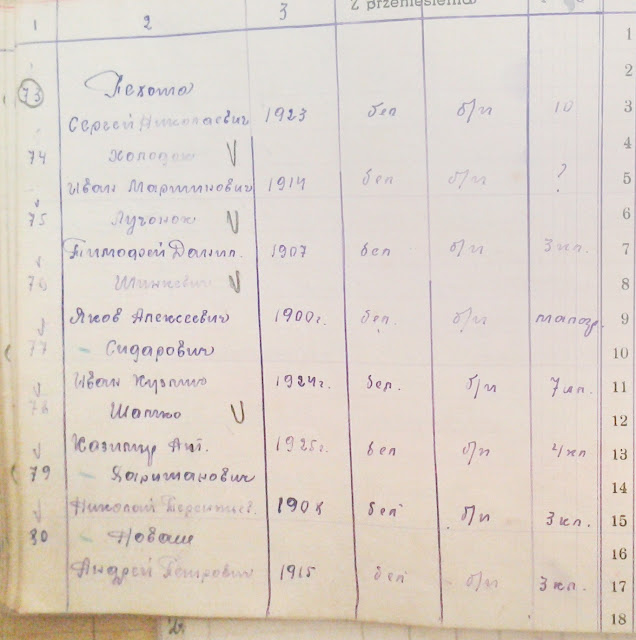 1 2 3 Z przeniesienia
1
2
73 Пехота
Сергей Николаевич 1923 бел б/п 10 3
4
74 Холодок V
Иван Мартинович 1914 бел б/п ? 5
6
75 Лучонок V
Тимофей Данил. 1907 бел б/п 3 кл. 7
76 Шинкевич V 8
Яков Алексеевич 1900г. бел. б/п малогр. 9
77 – Сидарович 10
Иван Кузьмич 1924г. бел. б/п 7 кл. 11
78 Шапко V 12
Казимир Ант. 1925г. бел б/п 4 кл 13
79 – Хаританович 14
Николай Терентьев. 1908 бел б/п 3 кл. 15
80 – Новаш 16
Андрей Петрович 1915 бел б/п 3 кл. 17
18